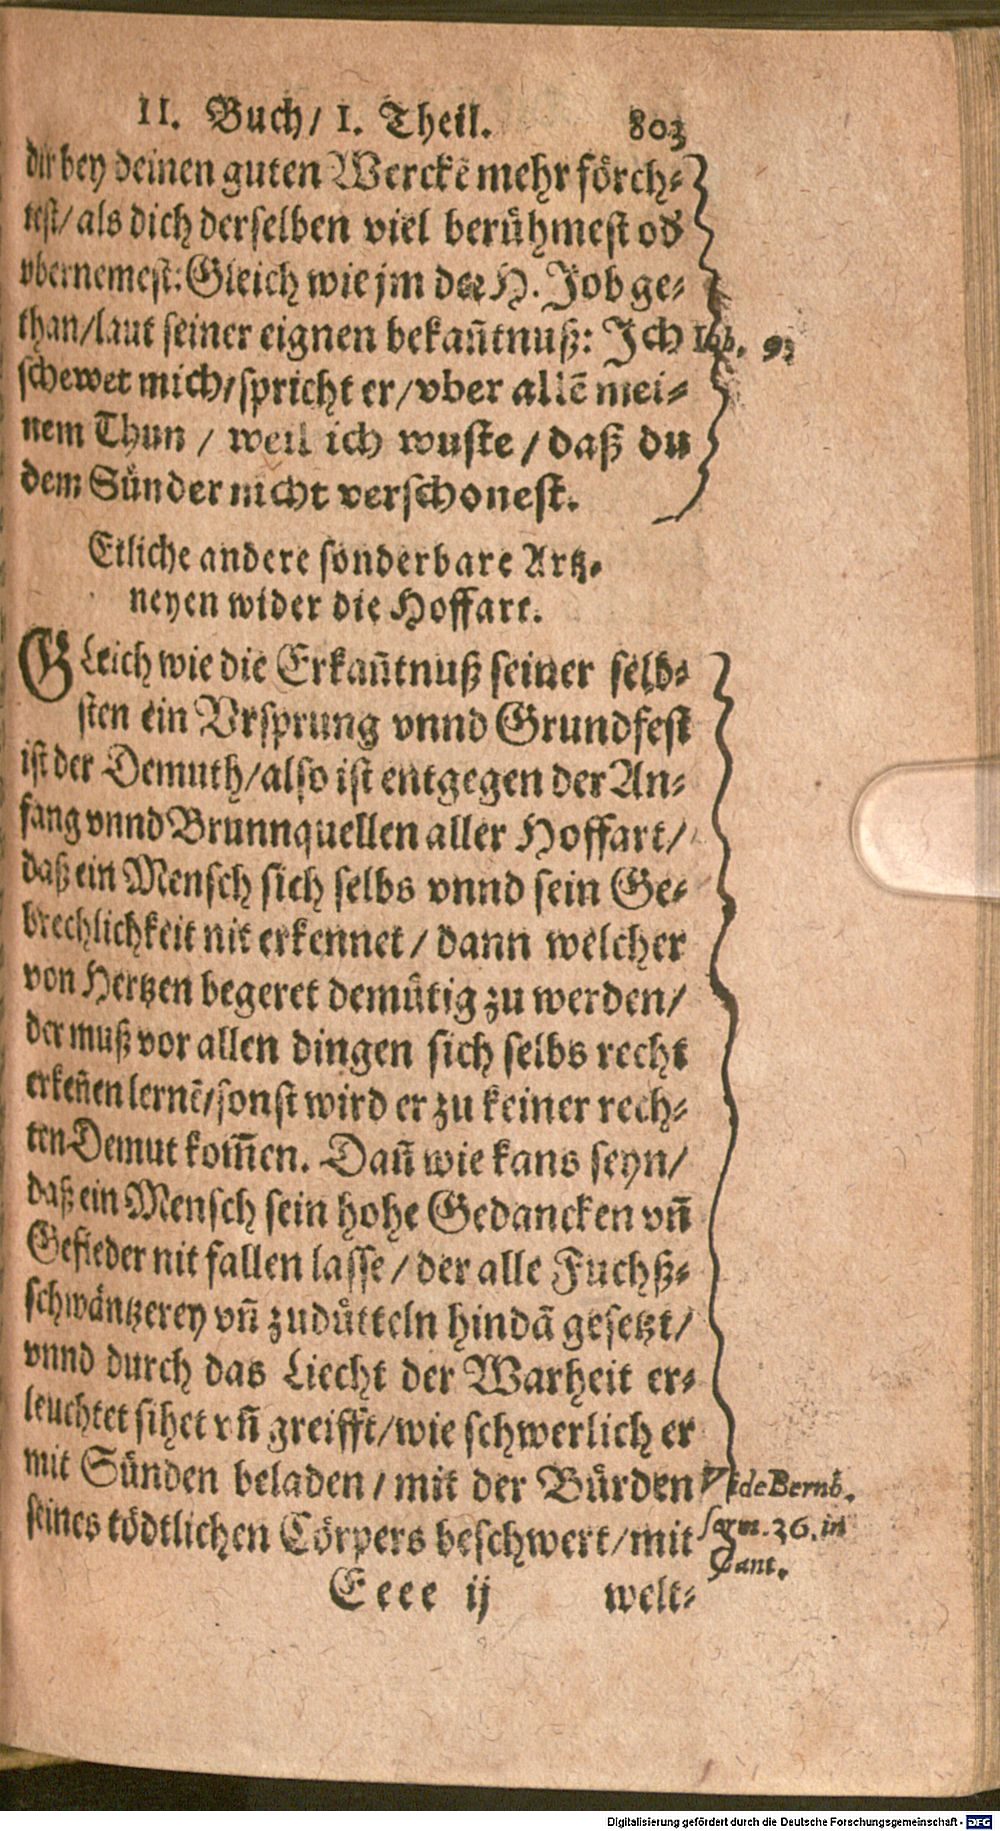 II. Buch/ I. Theil. 803
dir bey deinen guten Werckē mehr förch⸗
test/ als dich derselben viel berühmest od̕
vbernemest: Gleich wie jm der H. Job ge⸗
than/ laut seiner eignen bekañtnuß: Ich
Iob. 9.
schewet mich/ spricht er/ vber allē mei⸗
nem Thun / weil ich wuste / daß du
dem Sünder nicht verschonest.
Etliche andere sonderbare Artz⸗
neyen wider die Hoffart.
GLeich wie die Erkañtnuß seiner selb⸗
sten ein Vrsprung vnnd Grundfest
ist der Demuth/ also ist entgegen der An⸗
fang vnnd Brunnquellen aller Hoffart/
daß ein Mensch sich selbs vnnd sein Ge⸗
brechlichkeit nit erkennet / dann welcher
von Hertzen begeret demütig zu werden/
der muß vor allen dingen sich selbs recht
erkeñen lernē/ sonst wird er zu keiner rech⸗
ten Demut kom̃en. Dañ wie kans seyn/
daß ein Mensch sein hohe Gedancken vñ
Gefieder nit fallen lasse / der alle Fuchß⸗
schwäntzerey vñ zudütteln hindā gesetzt/
vnnd durch das Liecht der Warheit er⸗
leuchtet sihet vñ greifft/ wie schwerlich er
mit Sünden beladen / mit der Bürden
seines tödtlichen Cörpers beschwert/ mit
Vide Bernh.
serm. 36. in
Cant.
Eeee ij welt⸗
Digitalisierung gefördert durch die Deutsche Forschungsgemeinschaft - DFG